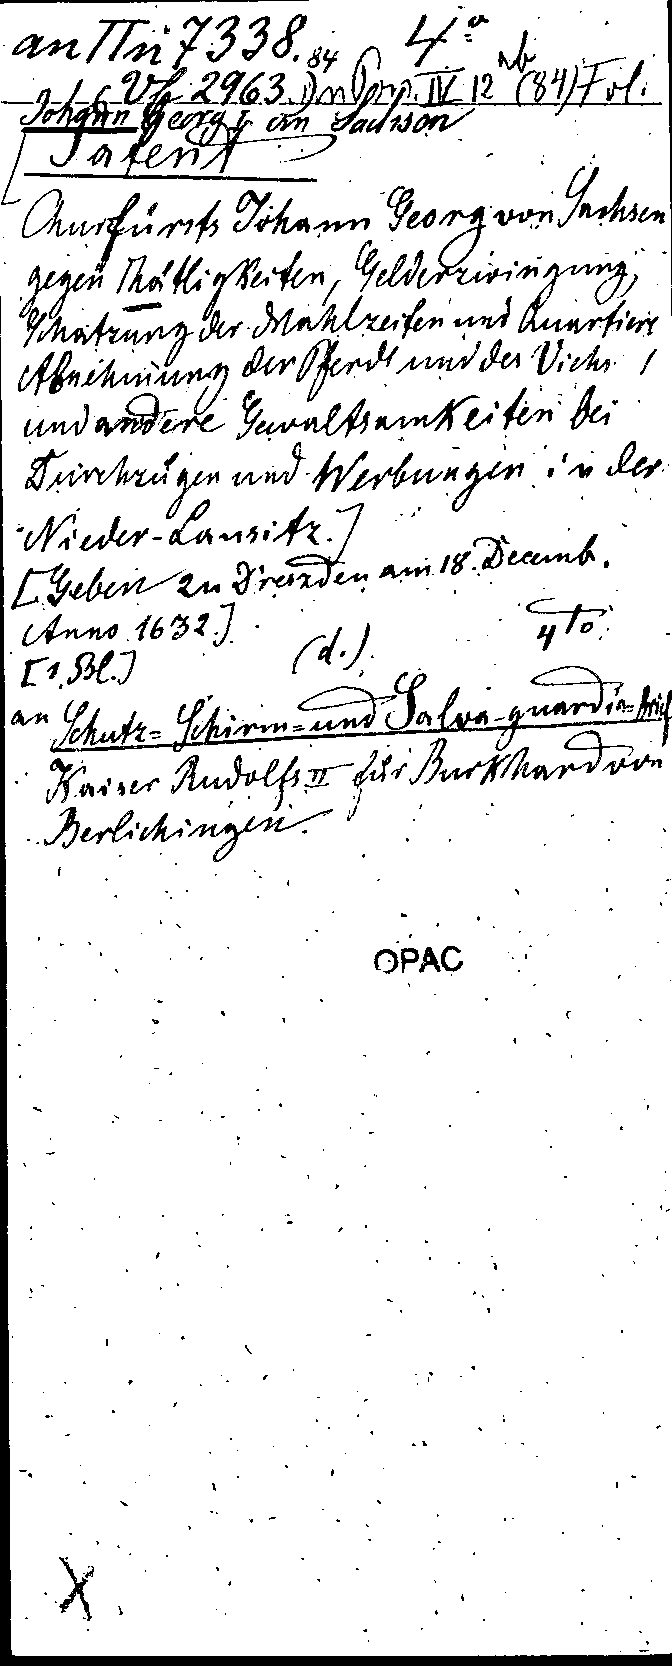 an II n 7338. 84 4°
Vf 2963. IV 12 (84) Fol.
Johann Georg I Sachsen
Patent
Churfürsts Johann Georg von Sachsen
gegen Thätligkeiten, Gelderzwingung,
Schatzung der Mahlzeiten und Quartiere
Abnehmung der Pferde und des Viehs,
und andere Gewaltsamkeiten bei
Durchzügen und Werbungen in der
Nieder-Lausitz.]
[Geben zu Dreszden am 18. Decemb.
Anno 1632.] 4to.
[1 Bl.] (d.)
an Schutz= Schirm= und Salva-guardia=brief
Kaiser Rudolfs II für Burkhard von
Berlichingen.
OPAC
X